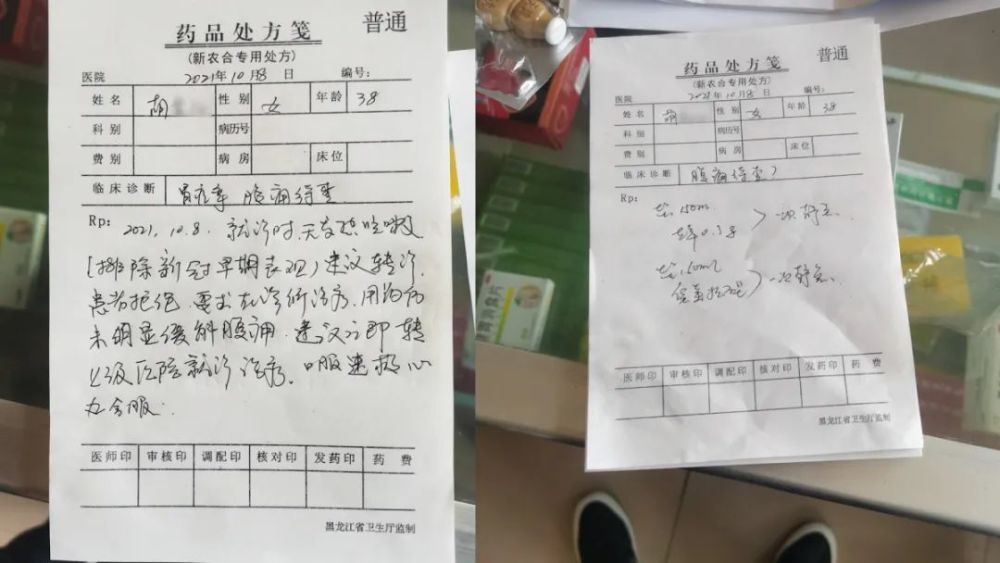 药品处方笺 普通
(新农合专用处方)
医院 2021年10月8日 编号:
姓名 胡 性别 女 年龄 38
科别 病历号
费别 病房 床位
临床诊断 胃疼 腹痛待查
Rp: 2021.10.8. 就诊时无发热咳嗽
(排除新冠早期表现)建议转诊.
患者拒绝 要求在诊所诊疗.用药后
未明显缓解腹痛.建议立即转
上级医院就诊治疗.口服速救心
医师印 审核印 调配印 核对印 发药印 药费
黑龙江省卫生厅监制
药品处方笺 普通
(新农合专用处方)
医院 2021年10月8日 编号:
姓名 胡 性别 女 年龄 38
科别 病历号
费别 病房 床位
临床诊断 腹痛待查?
Rp:
150ml
一次静点
0.3g
一次静点
医师印 审核印 调配印 核对印 发药印 药费
黑龙江省卫生厅监制